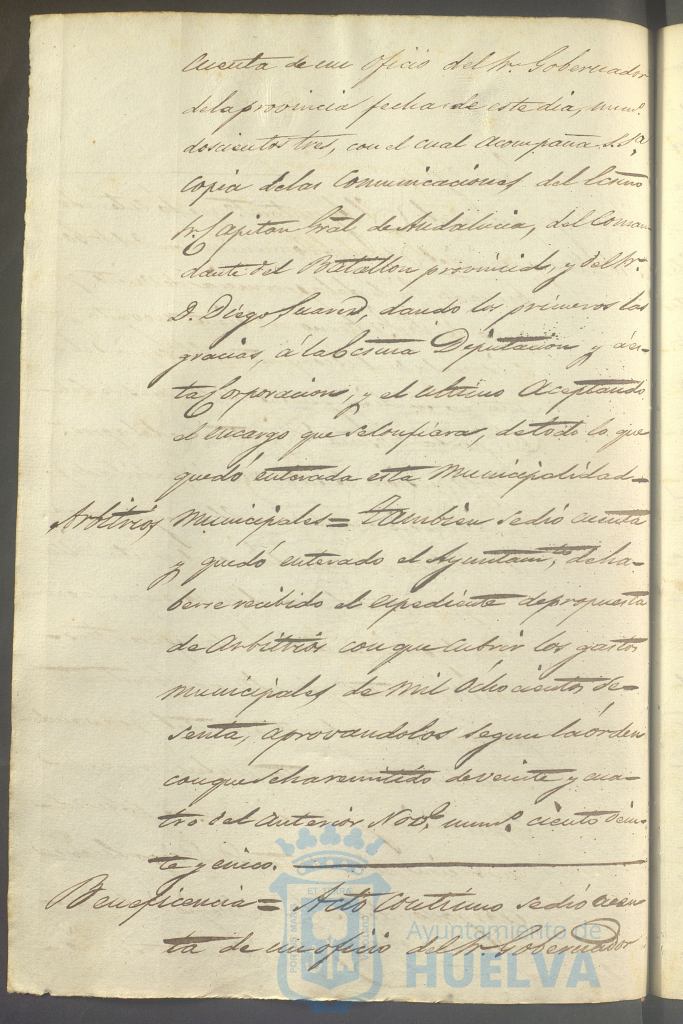 cuenta de un oficio del Sr. Gobernador
de la provincia fecha de este dia, numº.
doscientos tres, con el cual acompaña S. Sª.
copia de las comunicaciones del Ecsmo
Sr. Capitan Gral de Andalucia, del Coman
dante del Batallon provincial, y del Sr.
D. Diego Suarez, dando los primeros las
gracias, á la Ecsma Diputacion y á es-
ta Corporacion, y el ultimo aceptando
el encargo que se le confiera, de todo lo que
quedó enterada esta Municipalidad=
Arbitrios Municipales= Tambien se dió cuenta
y quedó enterado el Ayuntamto, de ha-
berse recibido el espediente de propuesta
de Arbitrios con que cubrir los gastos
municipales de mil ochocientos se-
senta, aprovandolos segun la órden
con que se ha remitido de veinte y cua-
tro del anterior Novbe. numº. ciento vein-
te y cinco.
Beneficencia= Acto continuo se dió cuen
ta de un oficio del Sr. Gobernador
Ayuntamiento de
HUELVA